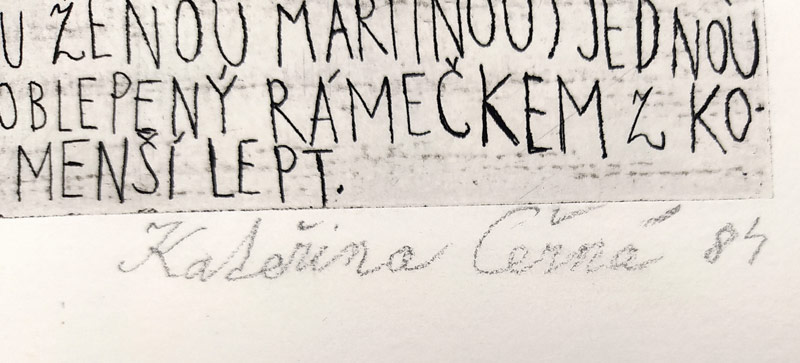 U ŽENOU MARTINOU) JEDNOU
OBLEPENÝ RÁMEČKEM Z KO-
MENŠÍ LEPT.
Kateřina Černá 84